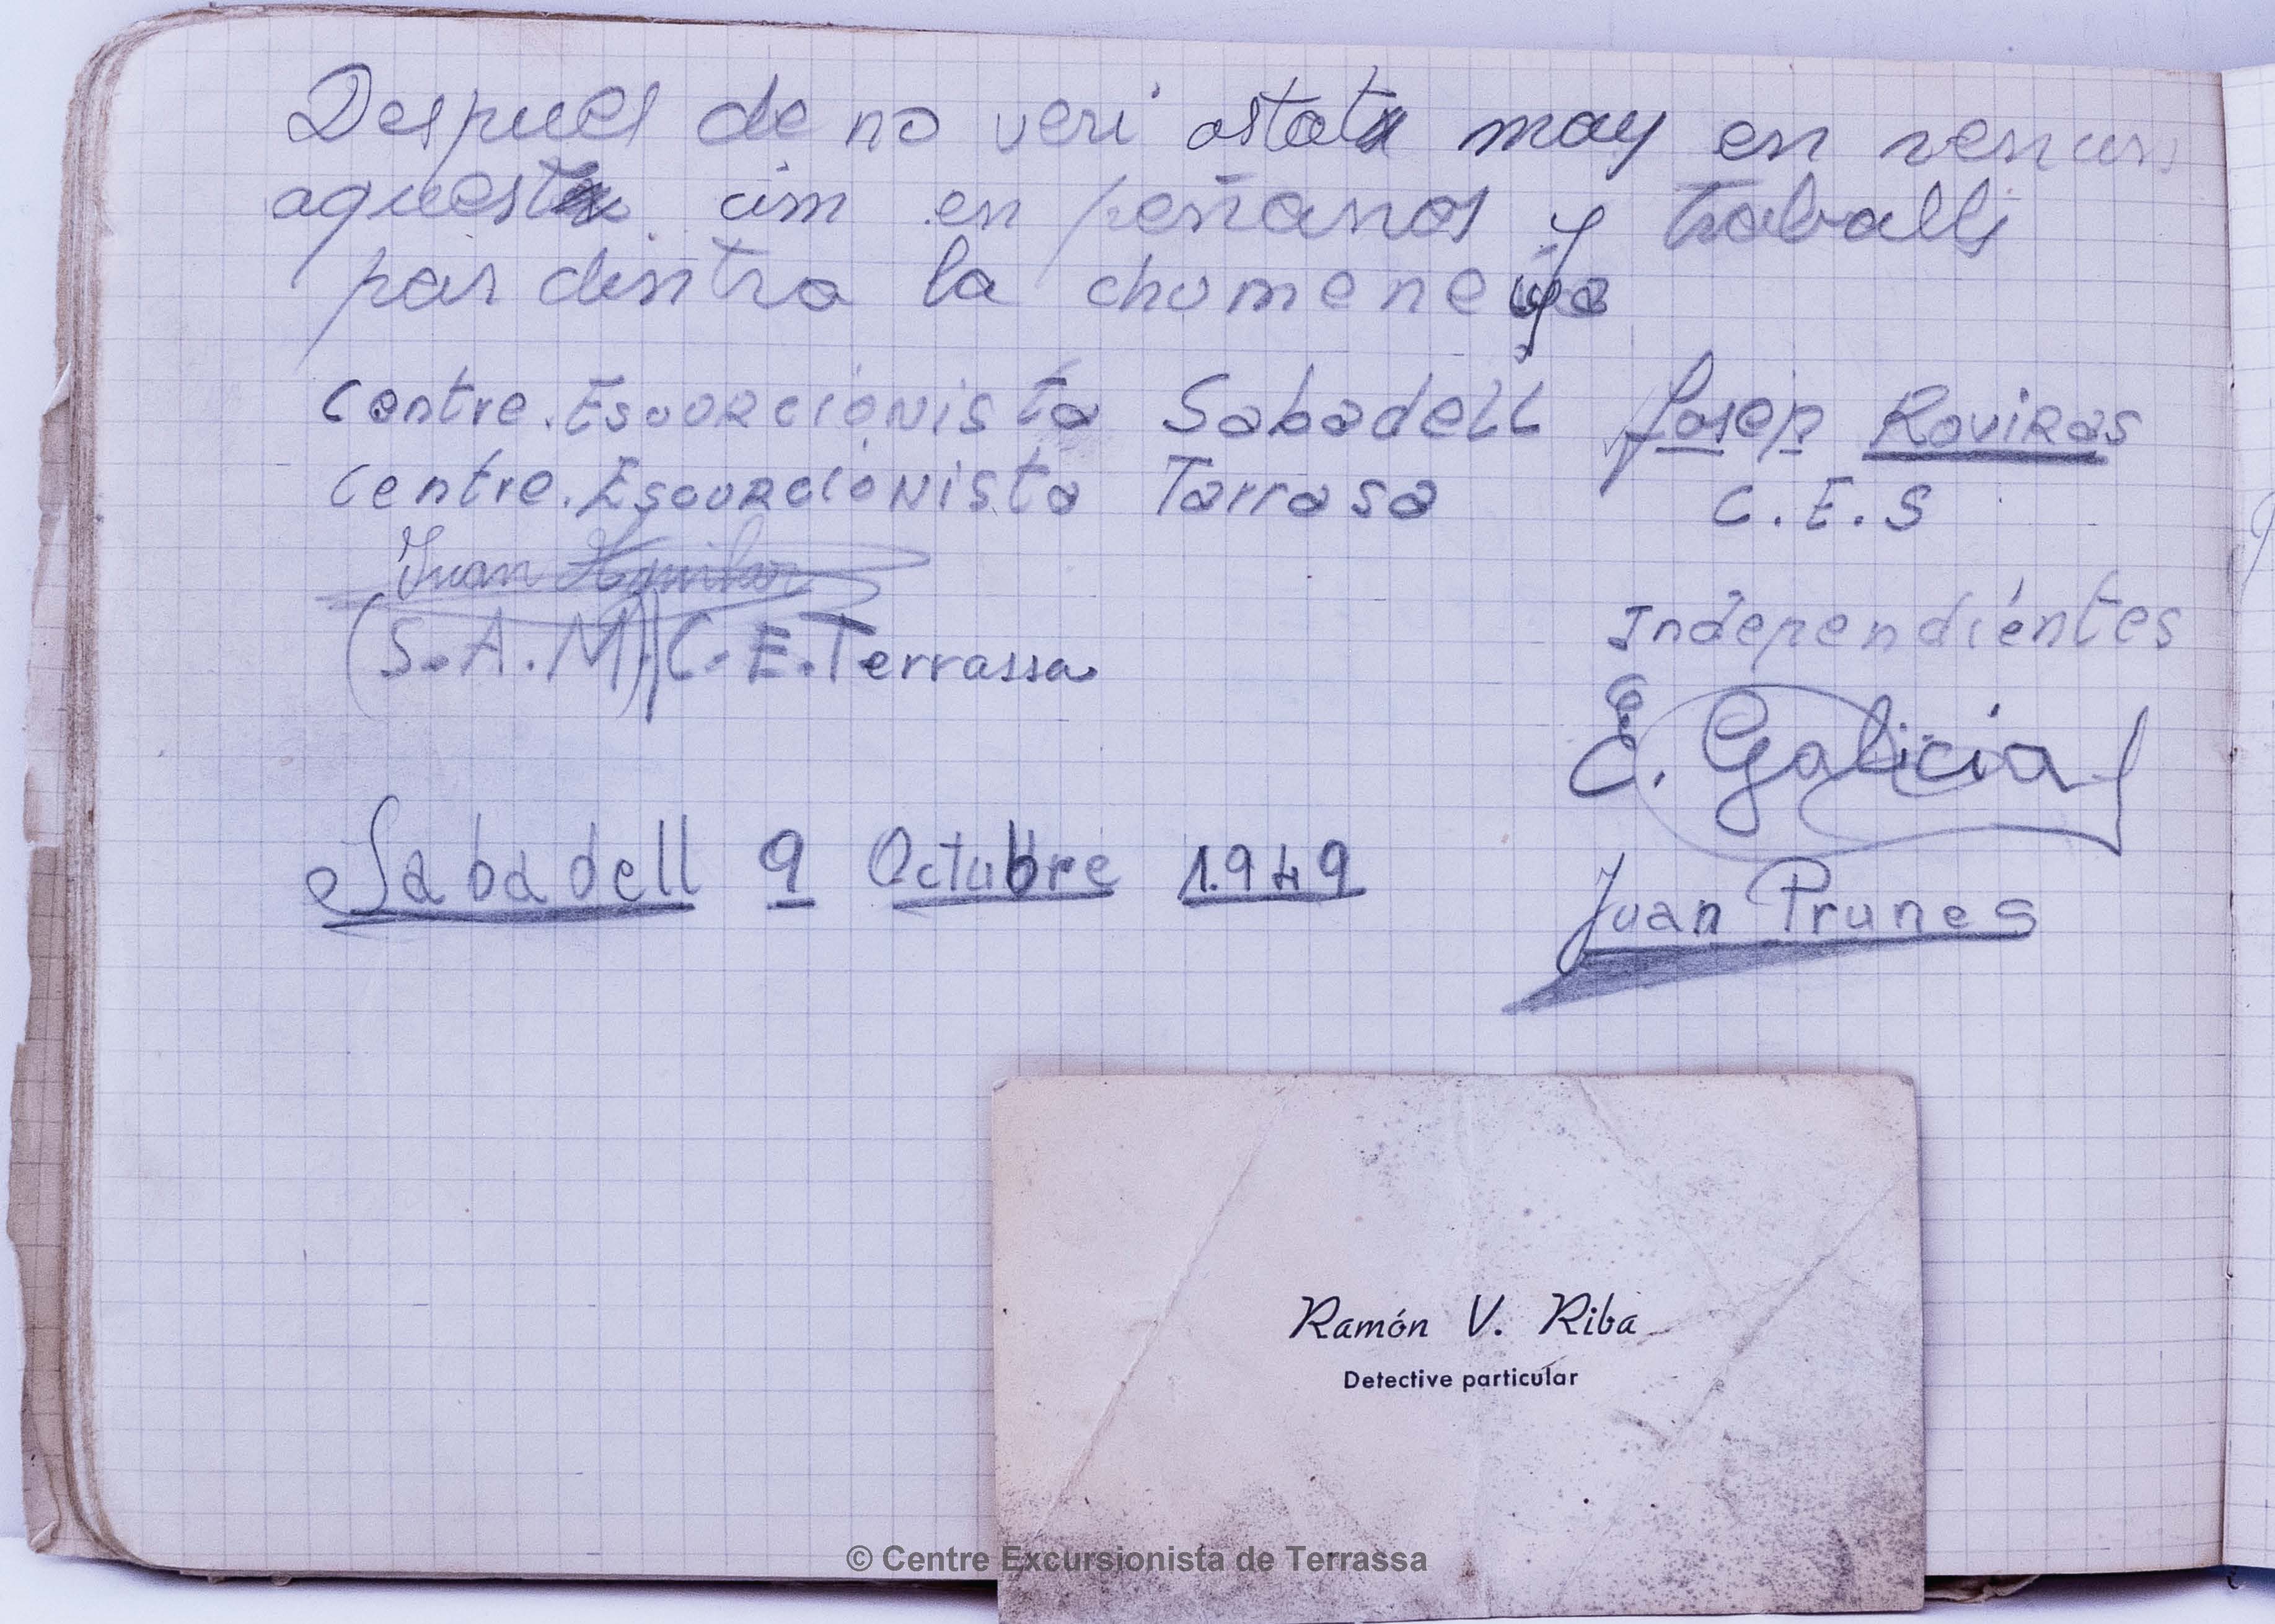 Despues de no veri estat may en
aquest cim en peñanos y traballs
par dintra la chumeneya
Centre. Escurcionista Sabadell
Josep Roviras
Centre. Escurcionista Tarrasa
C.E.S
Juan Aguilar
(S.A.M) C.E.Terrassa
Independientes
E. Galicia
Sabadell 9 Octubre 1.949
Juan Prunes
Ramón V. Riba
Detective particular
© Centre Excursionista de Terrassa